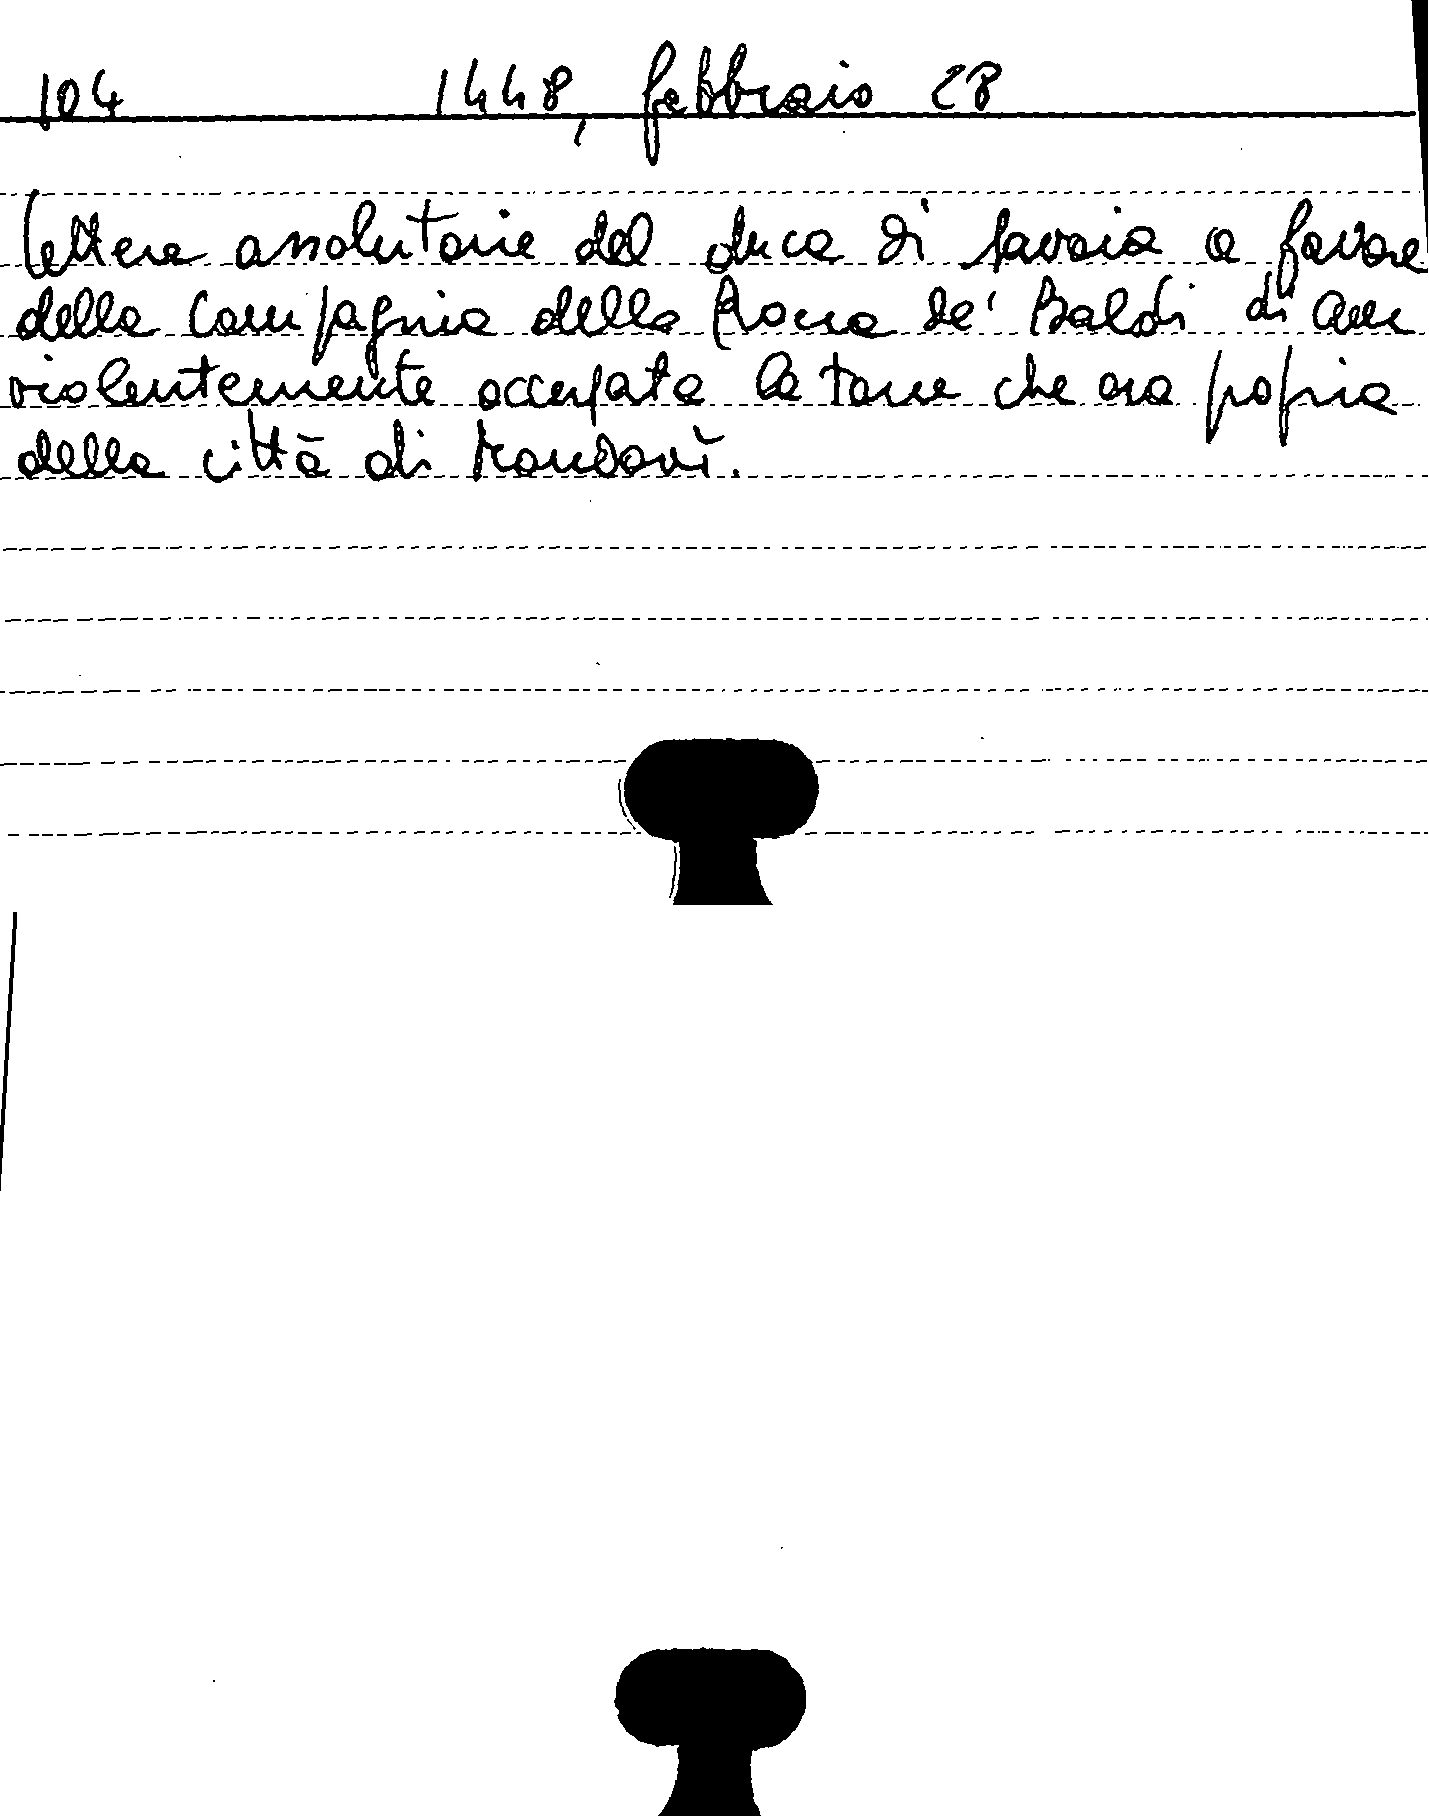 104 1448, febbraio 28
lettera assolutorie del duca di Savoia a favore
della Compagnia della Rocca de' Baldi di aver
violentemente occupata la torre che era propria
della città di Mondovì.